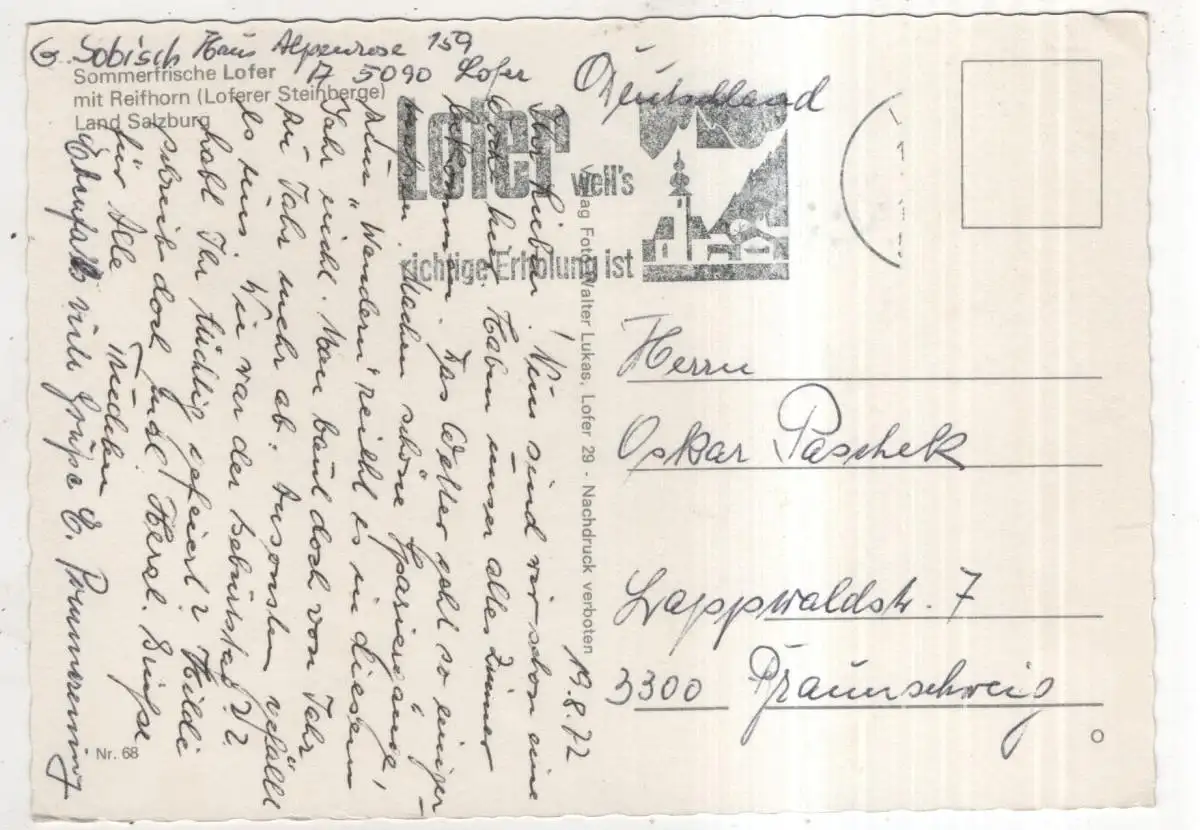 G. Sobisch Haus Alpenrose 159
A 5090 Lofer
Sommerfrische Lofer
mit Reifhorn (Loferer Steinberge)
Land Salzburg
Deutschland
Lofer
weil's
richtige Erholung ist
19.8.72
Ihr Lieben! Nun sind wir schon eine
Woche hier. Haben unser altes Zimmer
bekommen. Das Wetter geht so einiger-
Machen schöne Spaziergänge,
zum „Wandern" reicht es in diesem
Jahr nicht. Man baut doch von Jahr
zu Jahr mehr ab. Ansonsten gefällt
es uns. Wie war der Geburtstag?
habt Ihr tüchtig gefeiert? Hilde
schreib doch
Herzl. Grüße
für Alle Trudchen
Ebenfalls viele Grüße E.
Foto Walter Lukas, Lofer 29 - Nachdruck verboten
Herrn
Oskar Paschek
Lappwaldstr. 7
3300 Braunschweig
Nr. 68